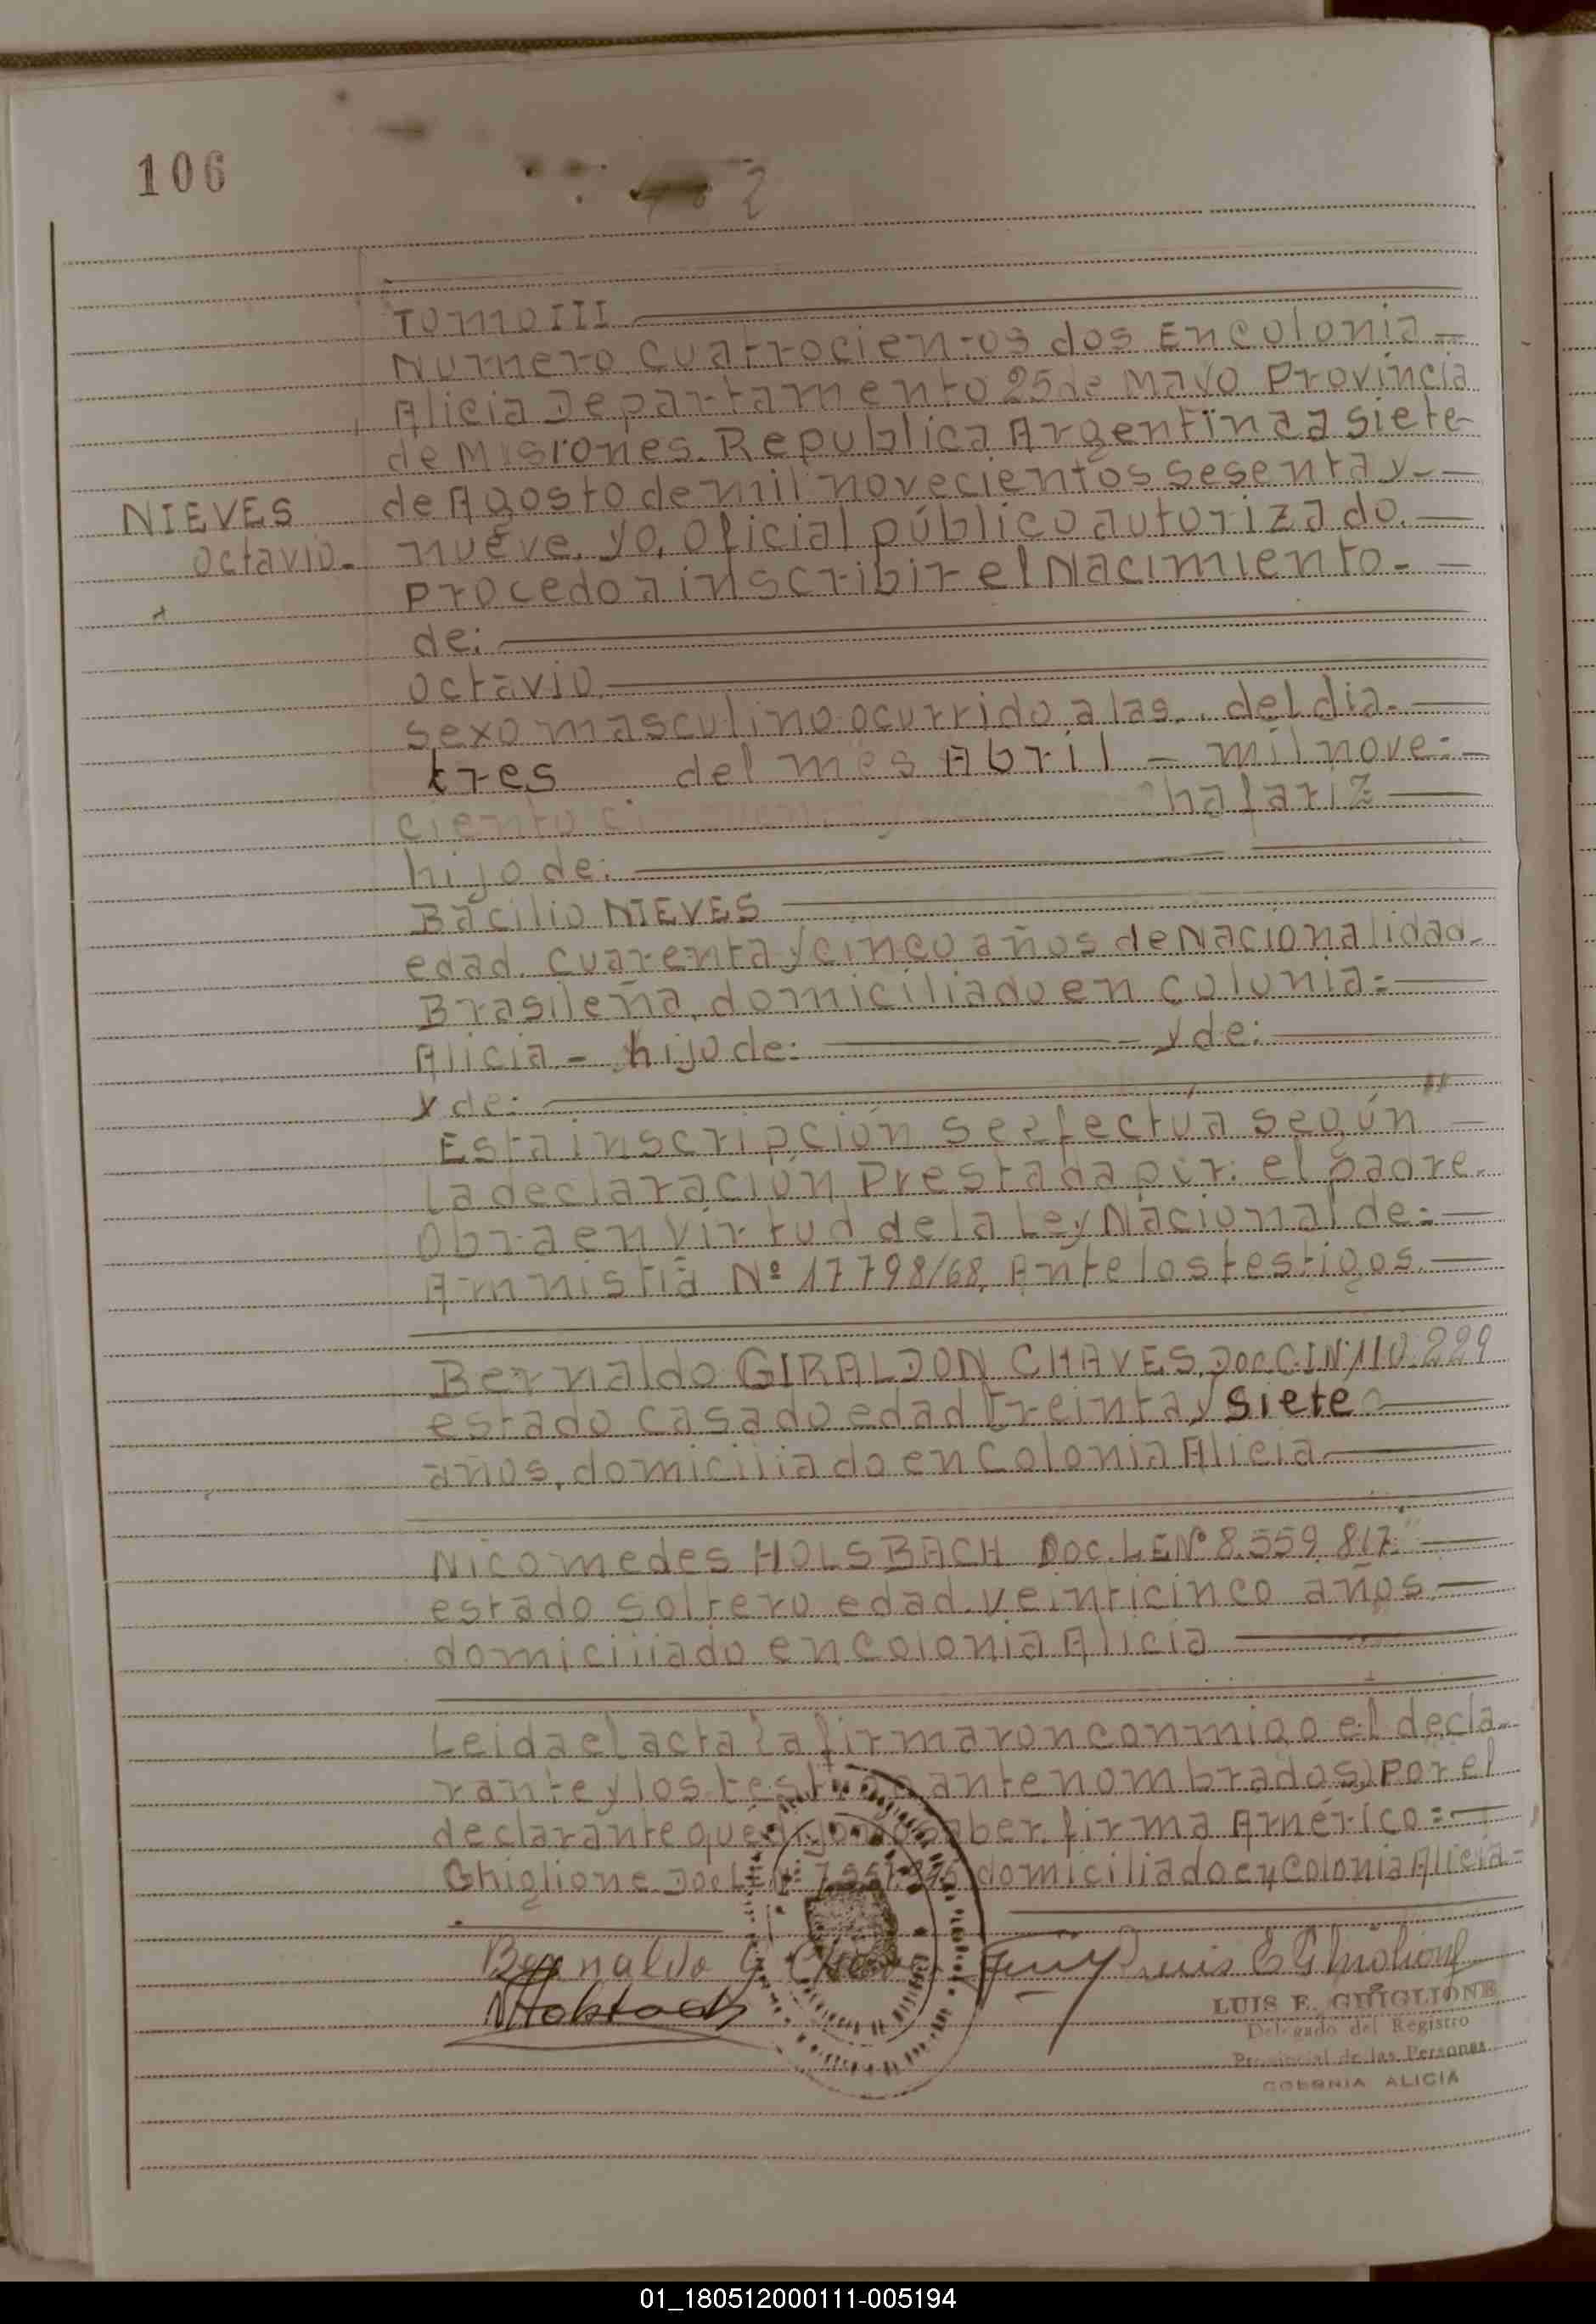 106
402
TOMO III
Numero Cuatrocientos dos En Colonia
Alicia Departamento 25 de Mayo Provincia
de Misiones. Republica Argentina a siete
NIEVES
Octavio.
de Agosto de mil novecientos sesenta y
nueve, yo, Oficial público autorizado.
procedo a inscribir el Nacimiento.
de:
Octavio.
sexo masculino ocurrido a las. . del dia.
tres del mes Abril - mil nove:
ciento chafariz
hijo de:
Bacilio NIEVES
edad. cuarenta y cinco años de Nacionalidad.
Brasileña, domiciliado en colonia:
Alicia - hijo de: y de:
y de:
Esta inscripción se efectúa según
la declaración Prestada por: el padre.
Obra en virtud de la Ley Nacional de:
Amnistia Nº 17798/68, Ante los testigos.
Bernaldo GIRALDON CHAVES, Doc C.I Nº 110.229
estado casado edad treinta y siete
años, domiciliado en Colonia Alicia
Nicomedes HOLSBACH Doc. LE Nº 8.559.817.
estado soltero edad. veinticinco años.
domiciliado en Colonia Alicia
Leida el acta la firmaron conmigo el decla-
rante y los testigos antenombrados, por el
declarante que dijo no saber, firma Américo:
Ghiglione Doc LE Nº domiciliado en Colonia Alicia-
Bernaldo G. Chaves Luis E Ghiglione
NHolsbach
LUIS E. GHIGLIONE
Delegado del Registro
Provincial de las Personas
COLONIA ALICIA
01_180512000111-005194